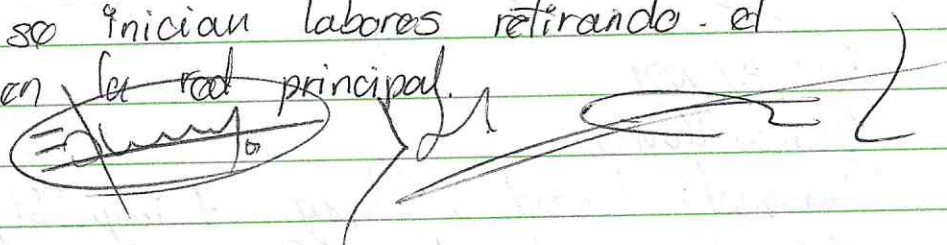 se inician labores retirando. el
en la red principal.